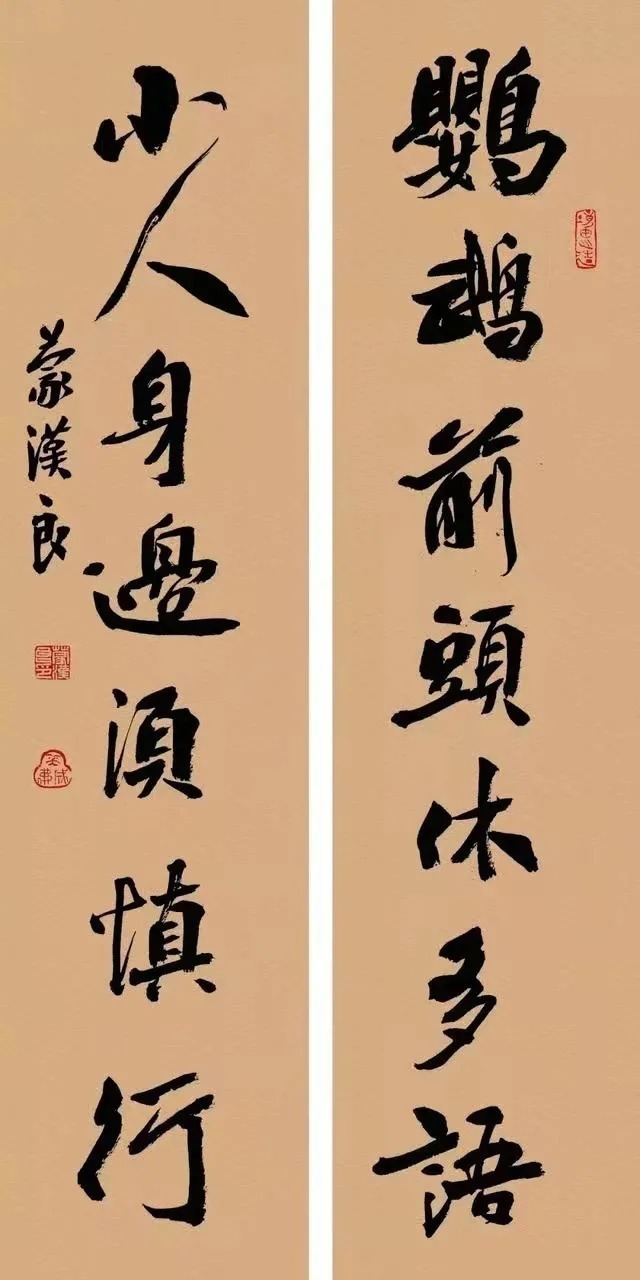 鸚鵡前頭休多語
小人身邊須慎行
蒙漢良